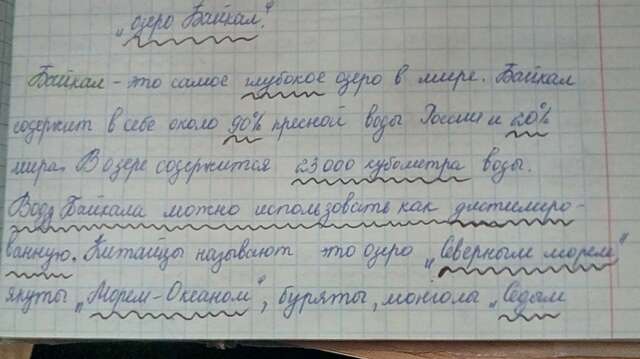 „озеро Байкал."
Байкал - это самое глубокое озеро в мире. Байкал
содержит в себе около 90% пресной воды России и 20%
мира. В озере содержится 23000 кубометра воды.
Воду Байкала можно использовать как дистилиро-
ванную. Китайцы называют это озеро „Северным морем"
якуты „Морем-Океаном", буряты, монголы „Седым